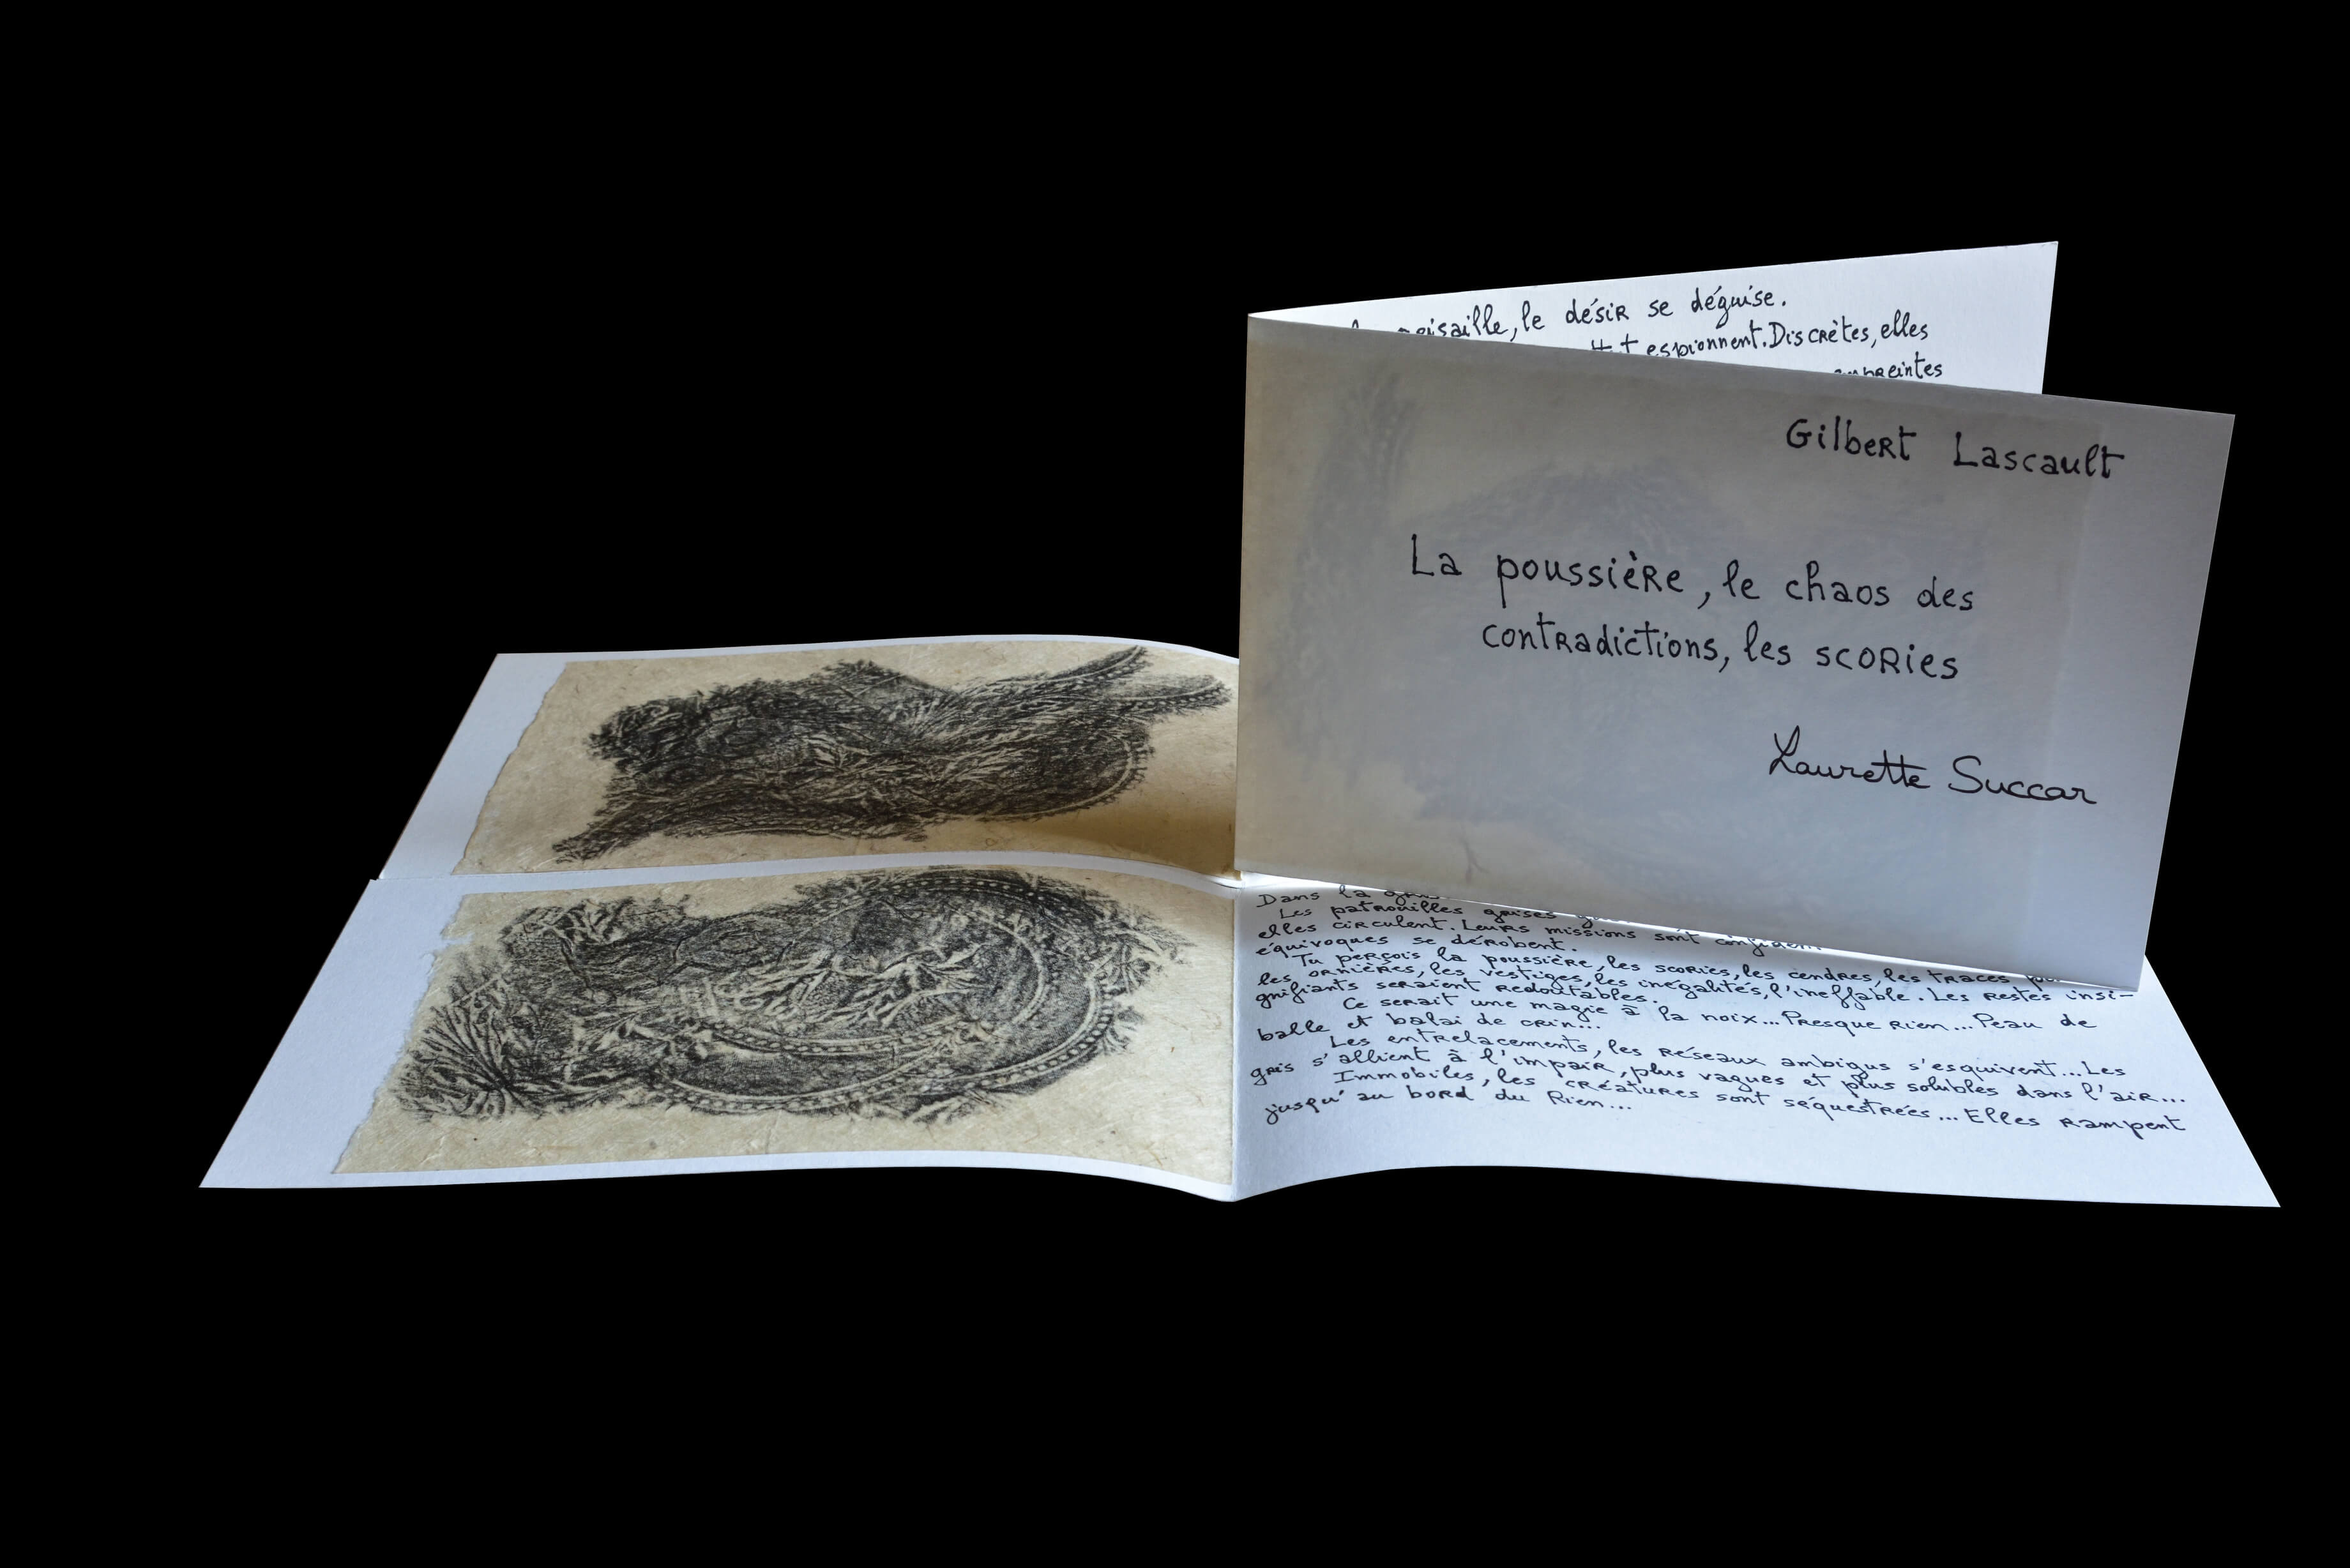 le désir se déguise.
espionnent. Discrètes, elles
empreintes
Gilbert Lascault
La poussière, le chaos des
contradictions, les scories
Laurette Succar
Dans la
Les patrouilles grises
elles circulent. Leurs missions sont
équivoques se dérobent.
Tu perçois la poussière, les scories, les cendres, les traces
les ornières, les vestiges, les inégalités, l'ineffable. Les restes insi-
gnifiants seraient redoutables.
Ce serait une magie à la noix... Presque rien... Peau de
balle et balai de crin...
Les entrelacements, les réseaux ambigus s'esquivent... Les
gris s'allient à l'impair, plus vagues et plus solubles dans l'air...
Immobiles, les créatures sont séquestrées... Elles rampent
jusqu'au bord du Rien...